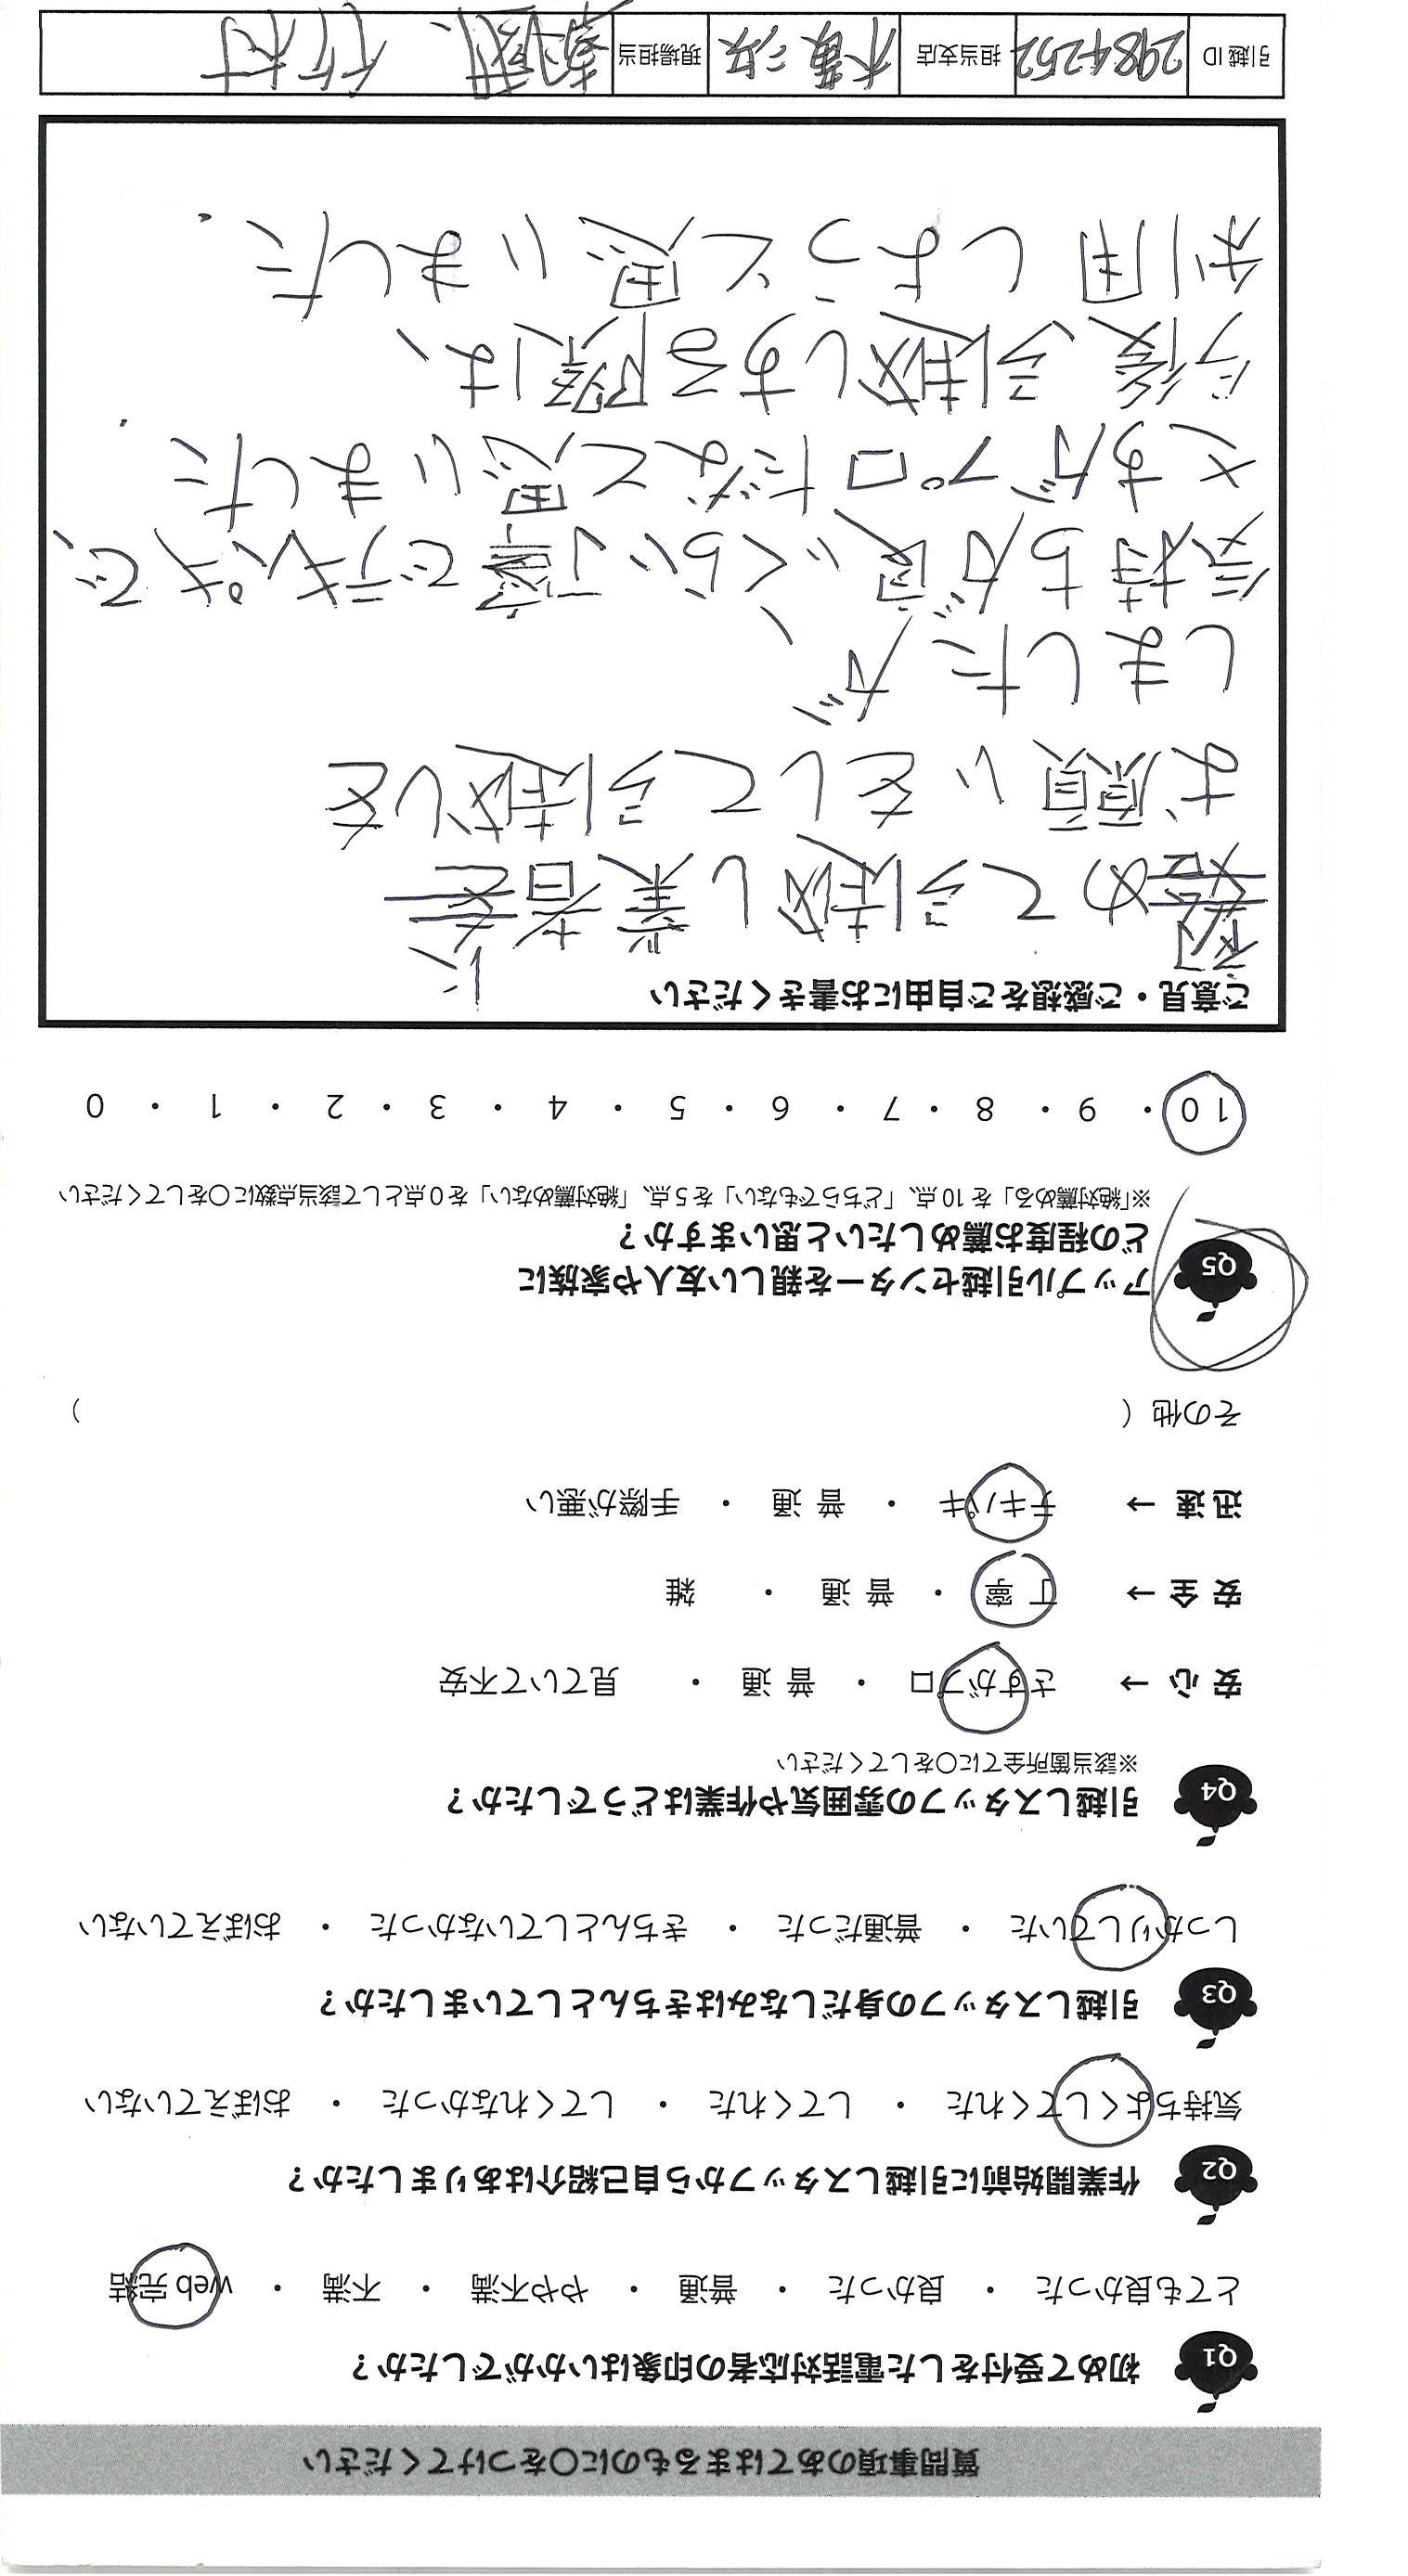 質問事項のあてはまるものに○をつけてください
Q1 初めて受付をした電話対応者の印象はいかがでしたか？
とても良かった ・ 良かった ・ 普通 ・ やや不満 ・ 不満 ・ web 完結
Q2 作業開始前に引越しスタッフから自己紹介はありましたか？
気持ちよくしてくれた ・ してくれた ・ してくれなかった ・ おぼえていない
Q3 引越しスタッフの身だしなみはきちんとしていましたか？
しっかりしていた ・ 普通だった ・ きちんとしていなかった ・ おぼえていない
Q4 引越しスタッフの雰囲気や作業はどうでしたか？
※該当箇所全てに○をしてください
安 心 → さすがプロ ・ 普 通 ・ 見ていて不安
安 全 → 丁 寧 ・ 普 通 ・ 雑
迅 速 → テキパキ ・ 普 通 ・ 手際が悪い
その他（ ）
Q5 アップル引越センターを親しい友人や家族に
どの程度お薦めしたいと思いますか？
※「絶対薦める」を 10 点、「どちらでもない」を 5 点、「絶対薦めない」を 0 点として該当点数に○をしてください
10 ・ 9 ・ 8 ・ 7 ・ 6 ・ 5 ・ 4 ・ 3 ・ 2 ・ 1 ・ 0
ご意見・ご感想をご自由にお書きください
初めて引越し業者に
お願いをして引越しを
しましたが、
気持ちが良いくらい丁寧でテキパキで、
さすがプロだなと思いました.
今後、引越しする際は、
利用しようと思いました.
引越 ID 2984252 担当支店 木更津 現場担当 竹村